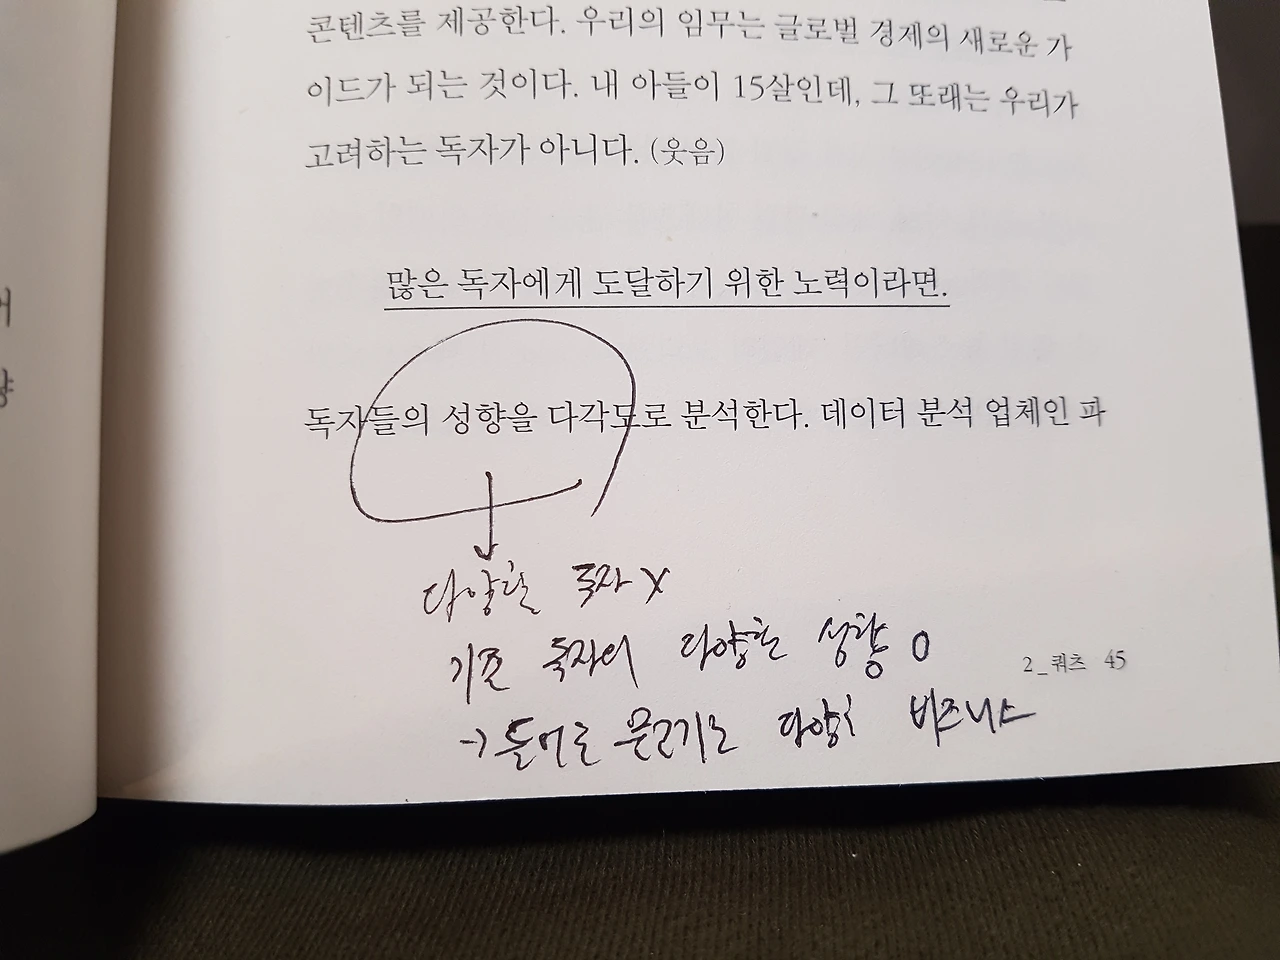 콘텐츠를 제공한다. 우리의 임무는 글로벌 경제의 새로운 가
이드가 되는 것이다. 내 아들이 15살인데, 그 또래는 우리가
고려하는 독자가 아니다. (웃음)
많은 독자에게 도달하기 위한 노력이라면.
독자들의 성향을 다각도로 분석한다. 데이터 분석 업체인 파
다양한 독자 X
기존 독자의 다양한 성향 O
→ 비즈니스
2_쿼츠 45